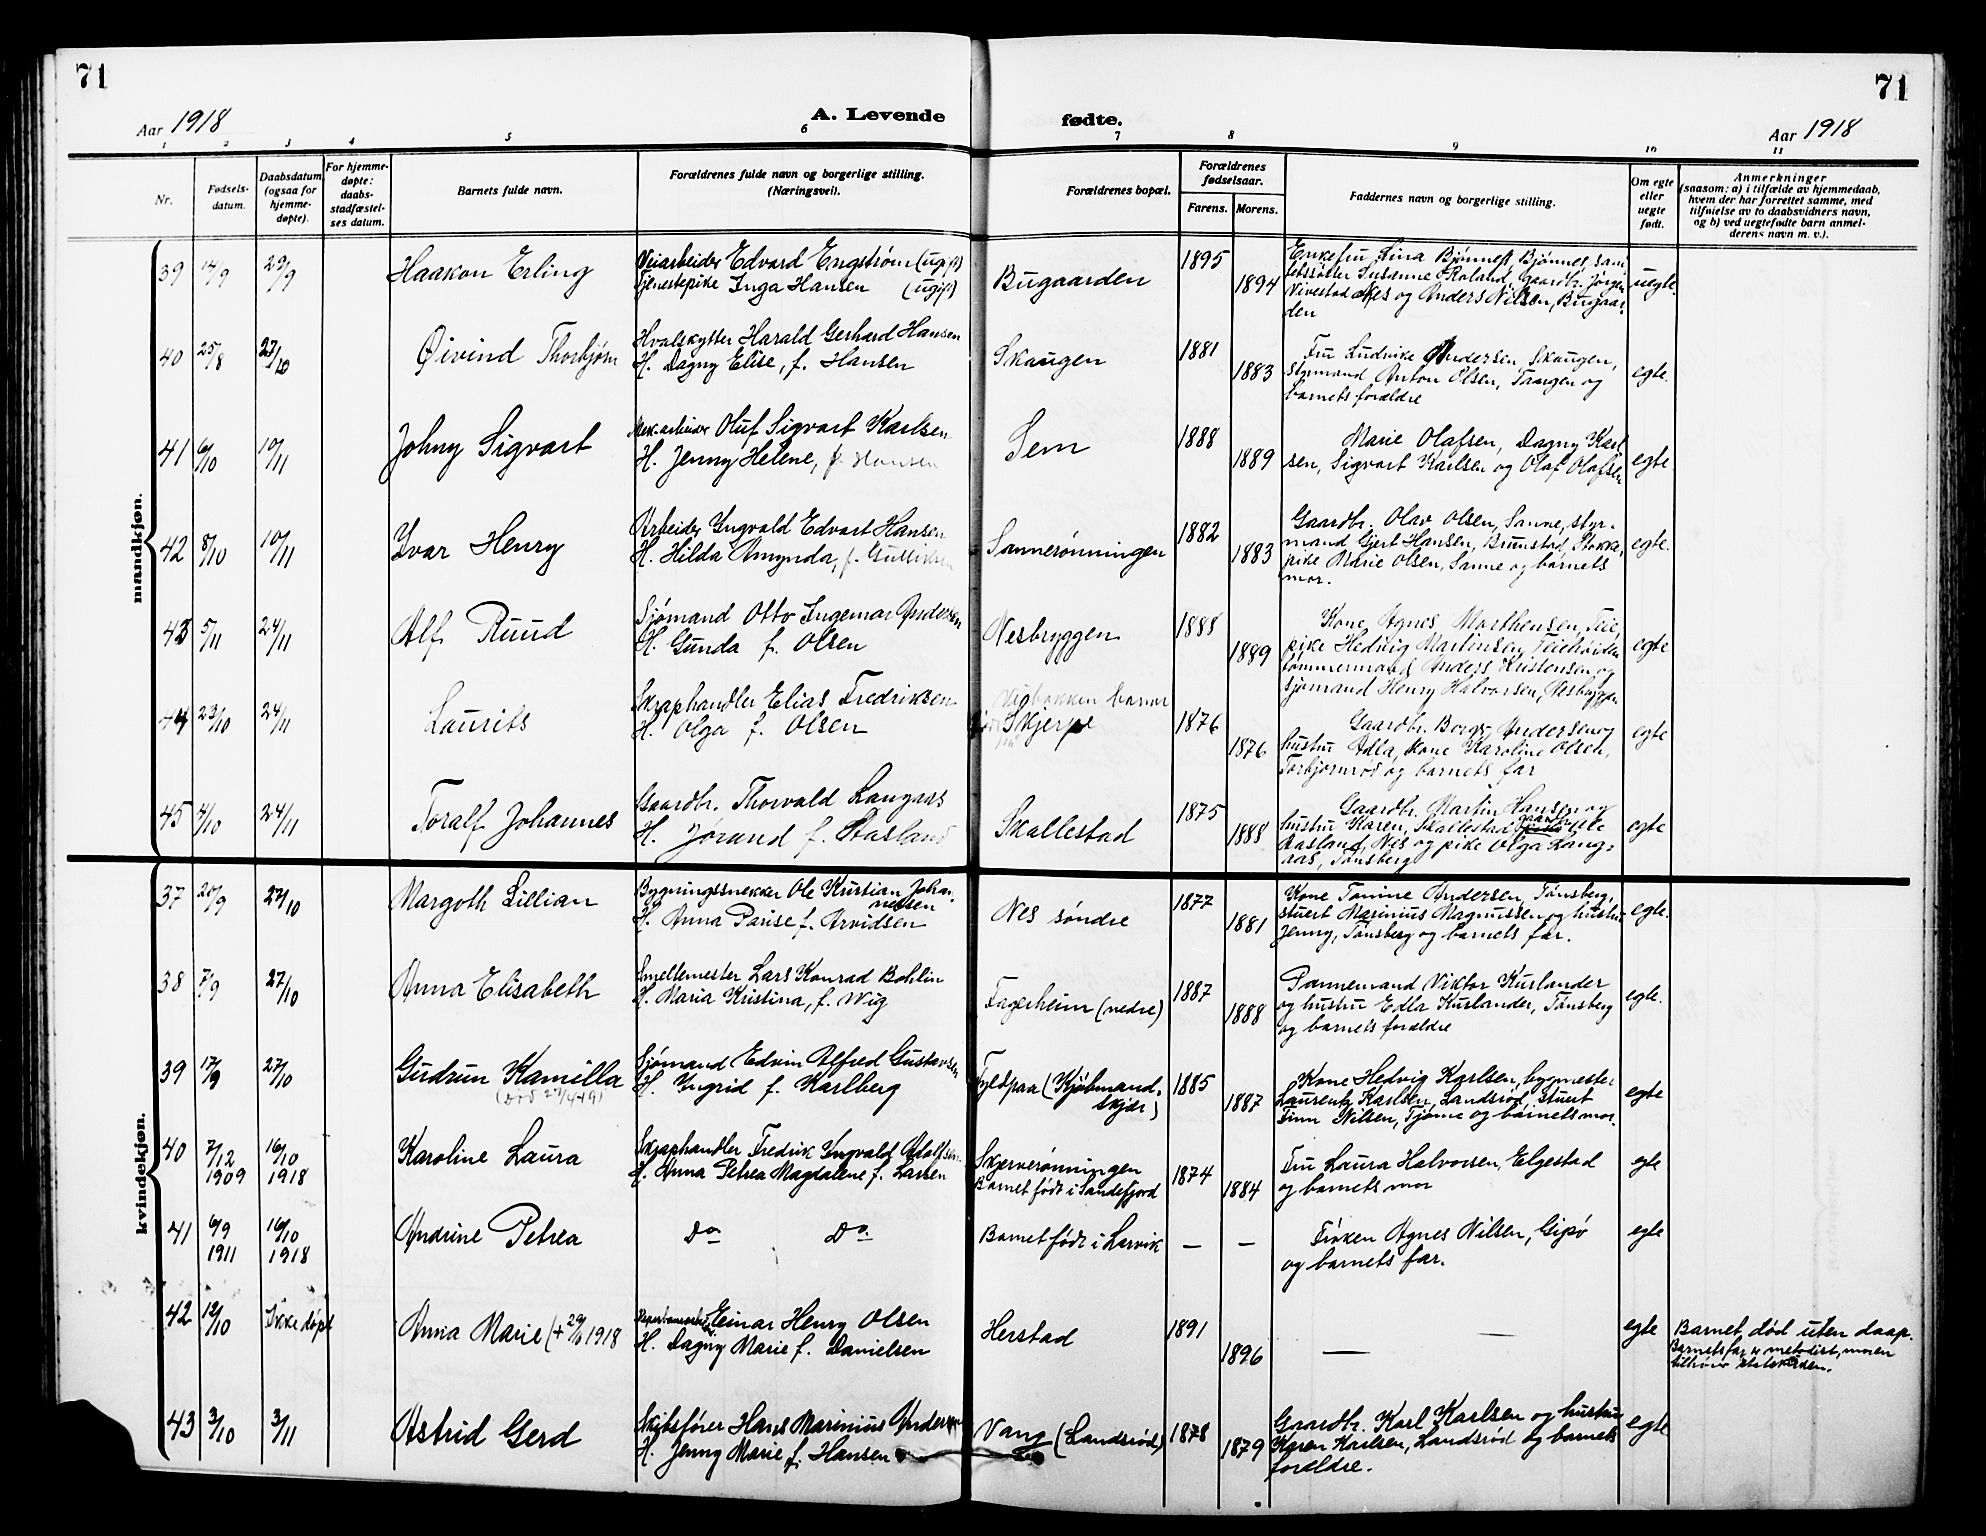 71
71
Aar 1918
A. Levende
fødte.
Aar 1918
1 2 3 4 5 6 7 8 9 10 11
Nr.
Fødsels-
datum.
Daabsdatum
(ogsaa for
hjemme-
døpte).
For hjemme-
døpte:
daabs-
stadfæstel-
ses datum.
Barnets fulde navn.
Forældrenes fulde navn og borgerlige stilling.
(Næringsvei).
Forældrenes bopæl.
Forældrenes
fødselsaar.
Farens. Morens.
Faddernes navn og borgerlige stilling.
Om egte
eller
uegte
født.
Anmerkninger
(saasom: a) i tilfælde av hjemmedaab,
hvem der har forrettet samme, med
tilføielse av to daabsvidners navn,
og b) ved uegtefødte barn anmel-
derens navn m. v.).
mandkjøn.
39 14/9 29/9
Haakon Erling
Veiarbeider Edvard Engstrøm (ugift)
Tjenestepike Inga Hansen (ugift)
Bugaarden
1895
1894
Enkefru Lina Bjønnes, Bjønnes, sam
Susanne Roland, gaardbr. Jørgen
Nes og Anders Nilsen, Bugaar-
den
uegte.
40 25/8 27/10
Øivind Thorbjørn
Hvalskytter Harald Gerhard Hansen
H. Dagny Elise, f. Hansen
Skaugen
1881
1883
Fru Ludvike Andersen, Skaugen,
styrmand Anton Olsen, Taagen og
barnets forældre
egte.
41 6/10 10/11
Johny Sigvart
Mek.arbeider Oluf Sigvart Karlsen
H. Jenny Helene, f. Hansen
Sem
1888
1889
Marie Olafsen, Dagny Karl
sen, Sigvart Karlsen og Olaf Olafsen
egte.
42 8/10 10/11
Yvar Henry
Arbeider Yngvald Edvart Hansen
H. Hilda Amynda, f. Gulliksen
Sannerønningen
1882
1883
Gaardbr. Olav Olsen, Sanne, styr-
mand Gjert Hansen, Brunstad, Stokke,
pike Marie Olsen, Sanne og barnets
mor.
egte.
43 5/11 24/11
Alf Ruud
Sjømand Otto Ingemar Andersen
H. Gunda f. Olsen
Nesbryggen
1888
1889
Kone Agnes Marthensen, Teie,
pike Hedvig Martinsen, Teiehøiden
tømmermand Anders Kristensen og
sjømand Henry Halvorsen, Nesbryggen
egte
44 23/10 24/11
Laurits
Skraphandler Elias Fredriksen
H. Olga f. Olsen
Skjerpe
1876
1876
Gaardbr. Borge Andersen og
hustru Adla, kone Karoline Olsen,
Torbjørnrød og barnets far
egte
45 4/10 24/11
Toralf Johannes
Gaardbr. Thorvald Langaas
H. Jørand f. Aasland
Skallestad
1875
1888
Gaardbr. Martin Hansen og
hustru Karen, Skallestad
Aasland, Nes og pike Olga Lang-
aas, Tønsberg
egte
kvindekjøn.
37 20/9 27/10
Margoth Lillian
Bygningssnekker Ole Kristian Johan-
nessen
H. Anna Parise f. Arvidsen
Nes søndre
1877
1881
Kone Tomine Andersen, Tønsberg,
stuert Marinius Magnussen og hustru
Jenny, Tønsberg og barnets far.
egte.
38 7/9 27/10
Anna Elisabeth
Smeltemester Lars Konrad Bohlin
H. Maria Kristina, f. Wig
Fagerheim (nedre)
1887
1888
Pannemand Viktor Kurlander
og hustru Edla Kurlander, Tønsberg
og barnets forældre
egte.
39 17/9 27/10
Gudrun Kamilla
Sjømand Edvin Alfred Gustavsen
H. Yngrid f. Karlberg
Fyldpaa (Kjøbmand-
skjær)
1885
1887
Kone Hedvig Karlsen, bygmester
Laurentz Karlsen, Landsrød, stuert
Finn Nilsen, Tjøme og barnets mor.
egte
40 7/12 16/10
1909 1918
Karoline Laura
Skraphandler Fredrik Yngvald Adolfsen
H. Anna Petrea Magdalene f. Larsen
Skjerverønningen
Barnet født i Sandefjord
1874
1884
Fru Laura Halvorsen, Elgestad
og barnets mor
egte
41 6/9 16/10
1911 1918
Andrine Petrea
Do Do
Barnet født i Larvik
— —
Frøken Agnes Nilsen, Gipø
og barnets far.
egte
42 12/10 Ikke døpt
Anna Marie (+ 29/10 1918
Einar Henry Olsen
H. Dagny Marie f. Danielsen
Herstad
1891
1896
— —
egte
Barnet død uten daap.
Barnets far er metodist, moren
tilhører statskirken.
43 3/10 3/11
Astrid Gerd
Skibsfører Hans Marinius Andersen
H. Jenny Marie f. Hansen
Vang (Landsrød)
1878
1879
Gaardbr. Karl Karlsen og hustru
Karen Karlsen, Landsrød og barnets
forældre.
egte